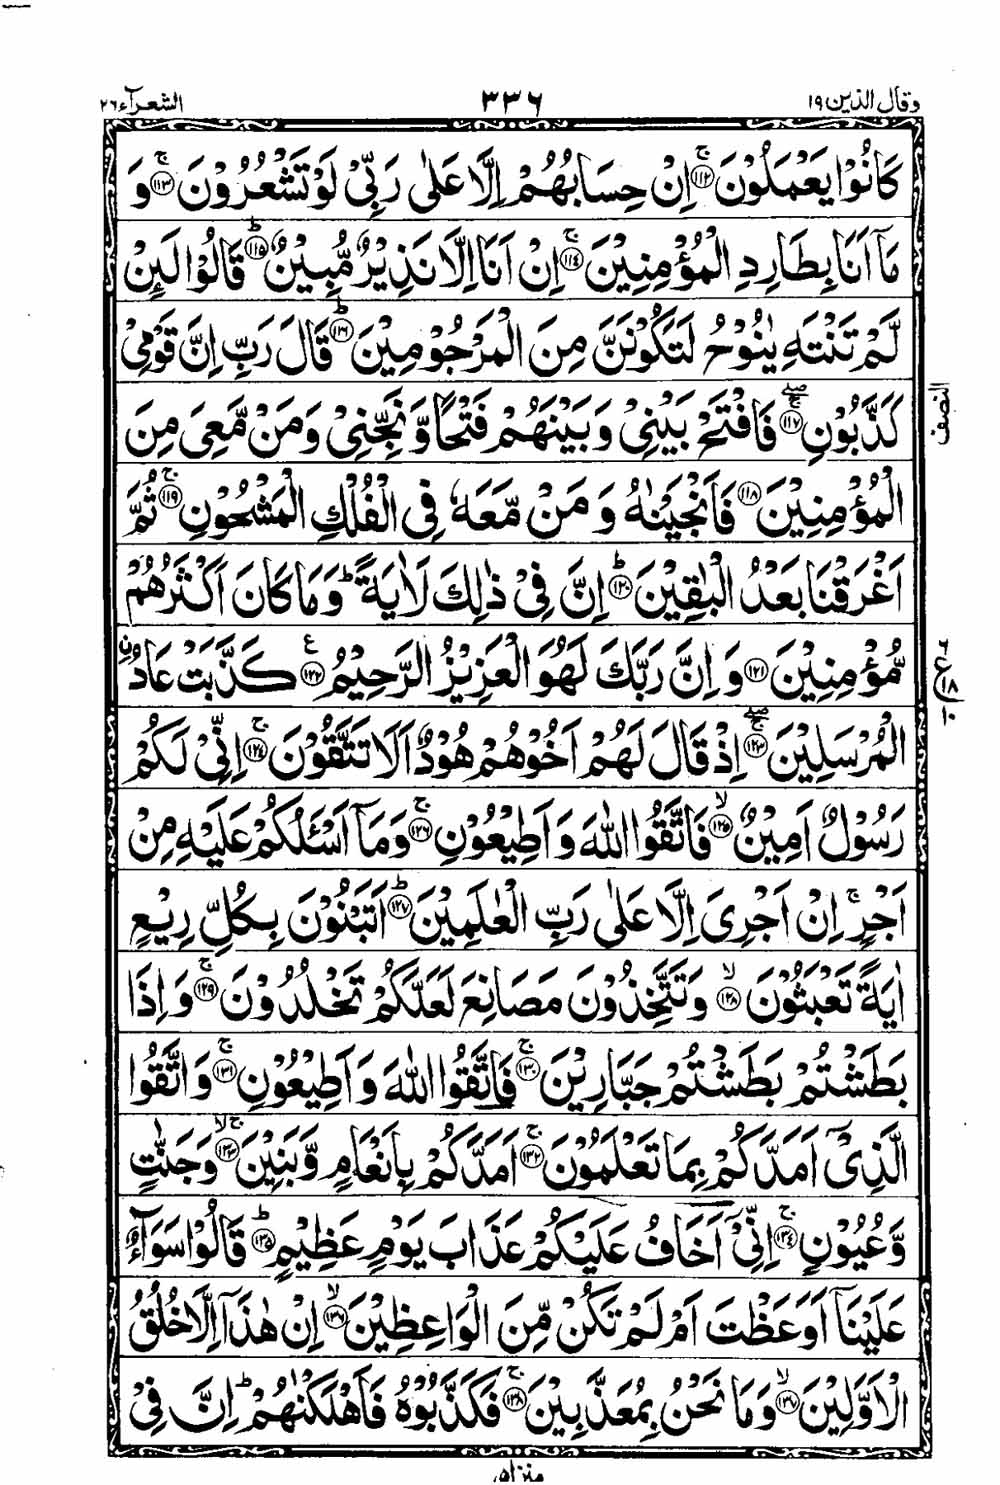 وقال الذین ۱۹ ۳۳۶ الشعرآء ۲۶
كَانُوْا يَعْمَلُوْنَ ۚ﴿۱۱۲﴾ اِنْ حِسَابُهُمْ اِلَّا عَلٰى رَبِّىْ لَوْ تَشْعُرُوْنَ ۚ﴿۱۱۳﴾ وَ
مَاۤ اَنَا بِطَارِدِ الْمُؤْمِنِيْنَ ۚ﴿۱۱۴﴾ اِنْ اَنَا اِلَّا نَذِيْرٌ مُّبِيْنٌ ؕ﴿۱۱۵﴾ قَالُوْا لَئِنْ
لَّمْ تَنْتَهِ يٰنُوْحُ لَتَكُوْنَنَّ مِنَ الْمَرْجُوْمِيْنَ ؕ﴿۱۱۶﴾ قَالَ رَبِّ اِنَّ قَوْمِىْ
كَذَّبُوْنِ ۚۖ﴿۱۱۷﴾ فَافْتَحْ بَيْنِىْ وَبَيْنَهُمْ فَتْحًا وَّنَجِّنِىْ وَمَنْ مَّعِىَ مِنَ
الْمُؤْمِنِيْنَ ﴿۱۱۸﴾ فَاَنْجَيْنٰهُ وَمَنْ مَّعَهٗ فِى الْفُلْكِ الْمَشْحُوْنِ ۚ﴿۱۱۹﴾ ثُمَّ
اَغْرَقْنَا بَعْدُ الْبٰقِيْنَ ؕ﴿۱۲۰﴾ اِنَّ فِىْ ذٰلِكَ لَاٰيَةً ؕ وَمَا كَانَ اَكْثَرُهُمْ
مُّؤْمِنِيْنَ ﴿۱۲۱﴾ وَاِنَّ رَبَّكَ لَهُوَ الْعَزِيْزُ الرَّحِيْمُ ﴿۱۲۲﴾ ع كَذَّبَتْ عَادُ ۨ
الْمُرْسَلِيْنَ ۚۖ﴿۱۲۳﴾ اِذْ قَالَ لَهُمْ اَخُوْهُمْ هُوْدٌ اَلَا تَتَّقُوْنَ ۚ﴿۱۲۴﴾ اِنِّىْ لَكُمْ
رَسُوْلٌ اَمِيْنٌ ۙ﴿۱۲۵﴾ فَاتَّقُوا اللّٰهَ وَاَطِيْعُوْنِ ۚ﴿۱۲۶﴾ وَمَاۤ اَسْـَٔلُكُمْ عَلَيْهِ مِنْ
اَجْرٍ ۚ اِنْ اَجْرِىَ اِلَّا عَلٰى رَبِّ الْعٰلَمِيْنَ ؕ﴿۱۲۷﴾ اَتَبْنُوْنَ بِكُلِّ رِيْعٍ
اٰيَةً تَعْبَثُوْنَ ۙ﴿۱۲۸﴾ وَتَتَّخِذُوْنَ مَصَانِعَ لَعَلَّكُمْ تَخْلُدُوْنَ ۚ﴿۱۲۹﴾ وَاِذَا
بَطَشْتُمْ بَطَشْتُمْ جَبَّارِيْنَ ۚ﴿۱۳۰﴾ فَاتَّقُوا اللّٰهَ وَاَطِيْعُوْنِ ۚ﴿۱۳۱﴾ وَاتَّقُوا
الَّذِىْۤ اَمَدَّكُمْ بِمَا تَعْلَمُوْنَ ۚ﴿۱۳۲﴾ اَمَدَّكُمْ بِاَنْعَامٍ وَّبَنِيْنَ ۚۙ﴿۱۳۳﴾ وَجَنّٰتٍ
وَّعُيُوْنٍ ۚ﴿۱۳۴﴾ اِنِّىْۤ اَخَافُ عَلَيْكُمْ عَذَابَ يَوْمٍ عَظِيْمٍ ؕ﴿۱۳۵﴾ قَالُوْا سَوَآءٌ
عَلَيْنَاۤ اَوَعَظْتَ اَمْ لَمْ تَكُنْ مِّنَ الْوَاعِظِيْنَ ۙ﴿۱۳۶﴾ اِنْ هٰذَاۤ اِلَّا خُلُقُ
الْاَوَّلِيْنَ ۙ﴿۱۳۷﴾ وَمَا نَحْنُ بِمُعَذَّبِيْنَ ۚ﴿۱۳۸﴾ فَكَذَّبُوْهُ فَاَهْلَكْنٰهُمْ ؕ اِنَّ فِىْ
النصف
۶ ع ۱۸ ۱۰
منزل ۵